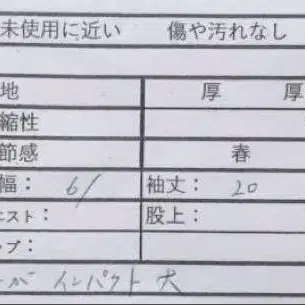 未使用に近い 傷や汚れなし
地 厚 厚
縮性
節感 春
幅： 61 袖丈： 20
エスト： 股上：
ップ：
ーが インパクト 大